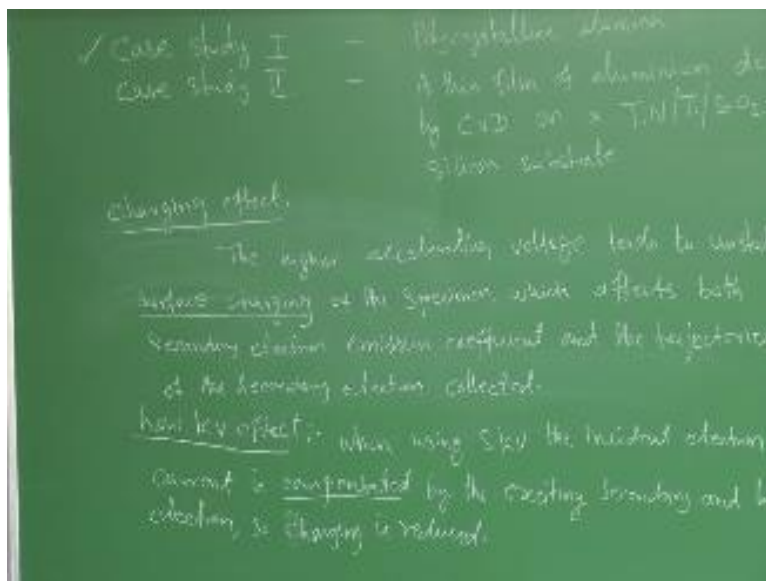 ✓ Case study I - Polycrystalline alumina
Case study II - A thin film of aluminium de
by CVD on a TiN/Ti/SiO2
silicon substrate
Charging effect.
The higher accelerating voltage leads to unstabl
surface charging of the specimen which affects both
secondary electron emission coefficient and the trajectories
of the secondary electron collected.
Low kv effect :- When using 5kV the incident electron
current is compensated by the exciting secondary and b
electron, so charging is reduced.